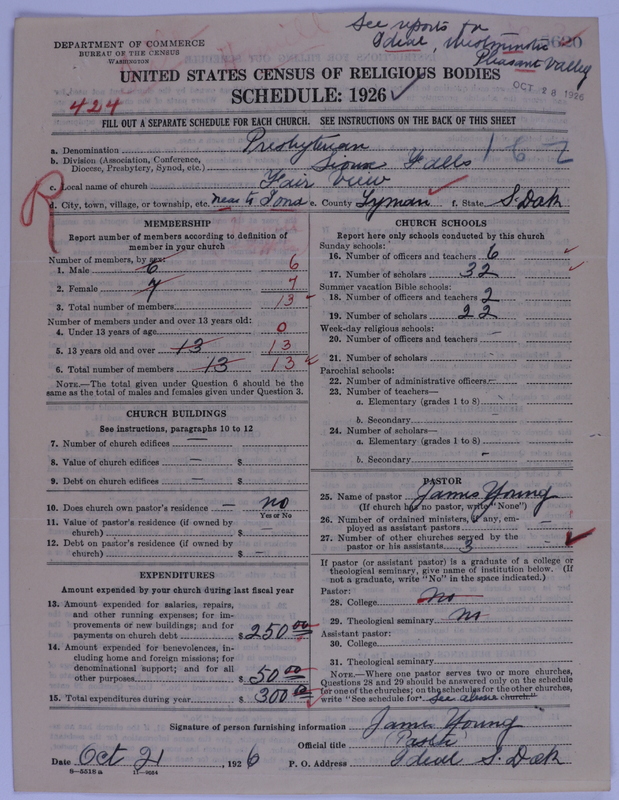 See reports for
Ideal, Westminster
Pleasant Valley
DEPARTMENT OF COMMERCE
BUREAU OF THE CENSUS
WASHINGTON
OCT 28 1926
UNITED STATES CENSUS OF RELIGIOUS BODIES
SCHEDULE: 1926
424
FILL OUT A SEPARATE SCHEDULE FOR EACH CHURCH. SEE INSTRUCTIONS ON THE BACK OF THIS SHEET
a. Denomination Presbyterian
b. Division (Association, Conference, Diocese, Presbytery, Synod, etc.) Sioux Falls 162
c. Local name of church Fair View
d. City, town, village, or township, etc. near to Iona e. County Lyman f. State S. Dak
R
MEMBERSHIP
Report number of members according to definition of
member in your church
Number of members, by sex:
1. Male 6 6
2. Female 7 7
3. Total number of members 13
Number of members under and over 13 years old:
4. Under 13 years of age 0
5. 13 years old and over 13 13
6. Total number of members 13 13
NOTE.—The total given under Question 6 should be the
same as the total of males and females given under Question 3.
CHURCH BUILDINGS
See instructions, paragraphs 10 to 12
7. Number of church edifices —
8. Value of church edifices — $
9. Debt on church edifices — $
10. Does church own pastor's residence — no
Yes or No
11. Value of pastor's residence (if owned by
church) $ —
12. Debt on pastor's residence (if owned by
church) $ —
EXPENDITURES
Amount expended by your church during last fiscal year
13. Amount expended for salaries, repairs,
and other running expenses; for im-
provements or new buildings; and for
payments on church debt $ 250.00
14. Amount expended for benevolences, in-
cluding home and foreign missions; for
denominational support; and for all
other purposes $ 50.00
15. Total expenditures during year $ 300.00
CHURCH SCHOOLS
Report here only schools conducted by this church
Sunday schools:
16. Number of officers and teachers 6
17. Number of scholars 32
Summer vacation Bible schools:
18. Number of officers and teachers 2
19. Number of scholars 22
Week-day religious schools:
20. Number of officers and teachers —
21. Number of scholars —
Parochial schools:
22. Number of administrative officers —
23. Number of teachers—
a. Elementary (grades 1 to 8)
b. Secondary
24. Number of scholars—
a. Elementary (grades 1 to 8)
b. Secondary
PASTOR
25. Name of pastor James Young
(If church has no pastor, write "None")
26. Number of ordained ministers, if any, em-
ployed as assistant pastors —
27. Number of other churches served by the
pastor or his assistants 3
If pastor (or assistant pastor) is a graduate of a college or
theological seminary, give name of institution below. (If
not a graduate, write "No" in the space indicated.)
Pastor:
28. College no
29. Theological seminary no
Assistant pastor:
30. College
31. Theological seminary
NOTE.—Where one pastor serves two or more churches,
Questions 28 and 29 should be answered only on the schedule
for one of the churches; on the schedules for the other churches,
write "See schedule for see above church."
Signature of person furnishing information James Young
Official title Pastor
Date Oct 21, 1926 P. O. Address Ideal S. Dak
8—5518 a 11—9684